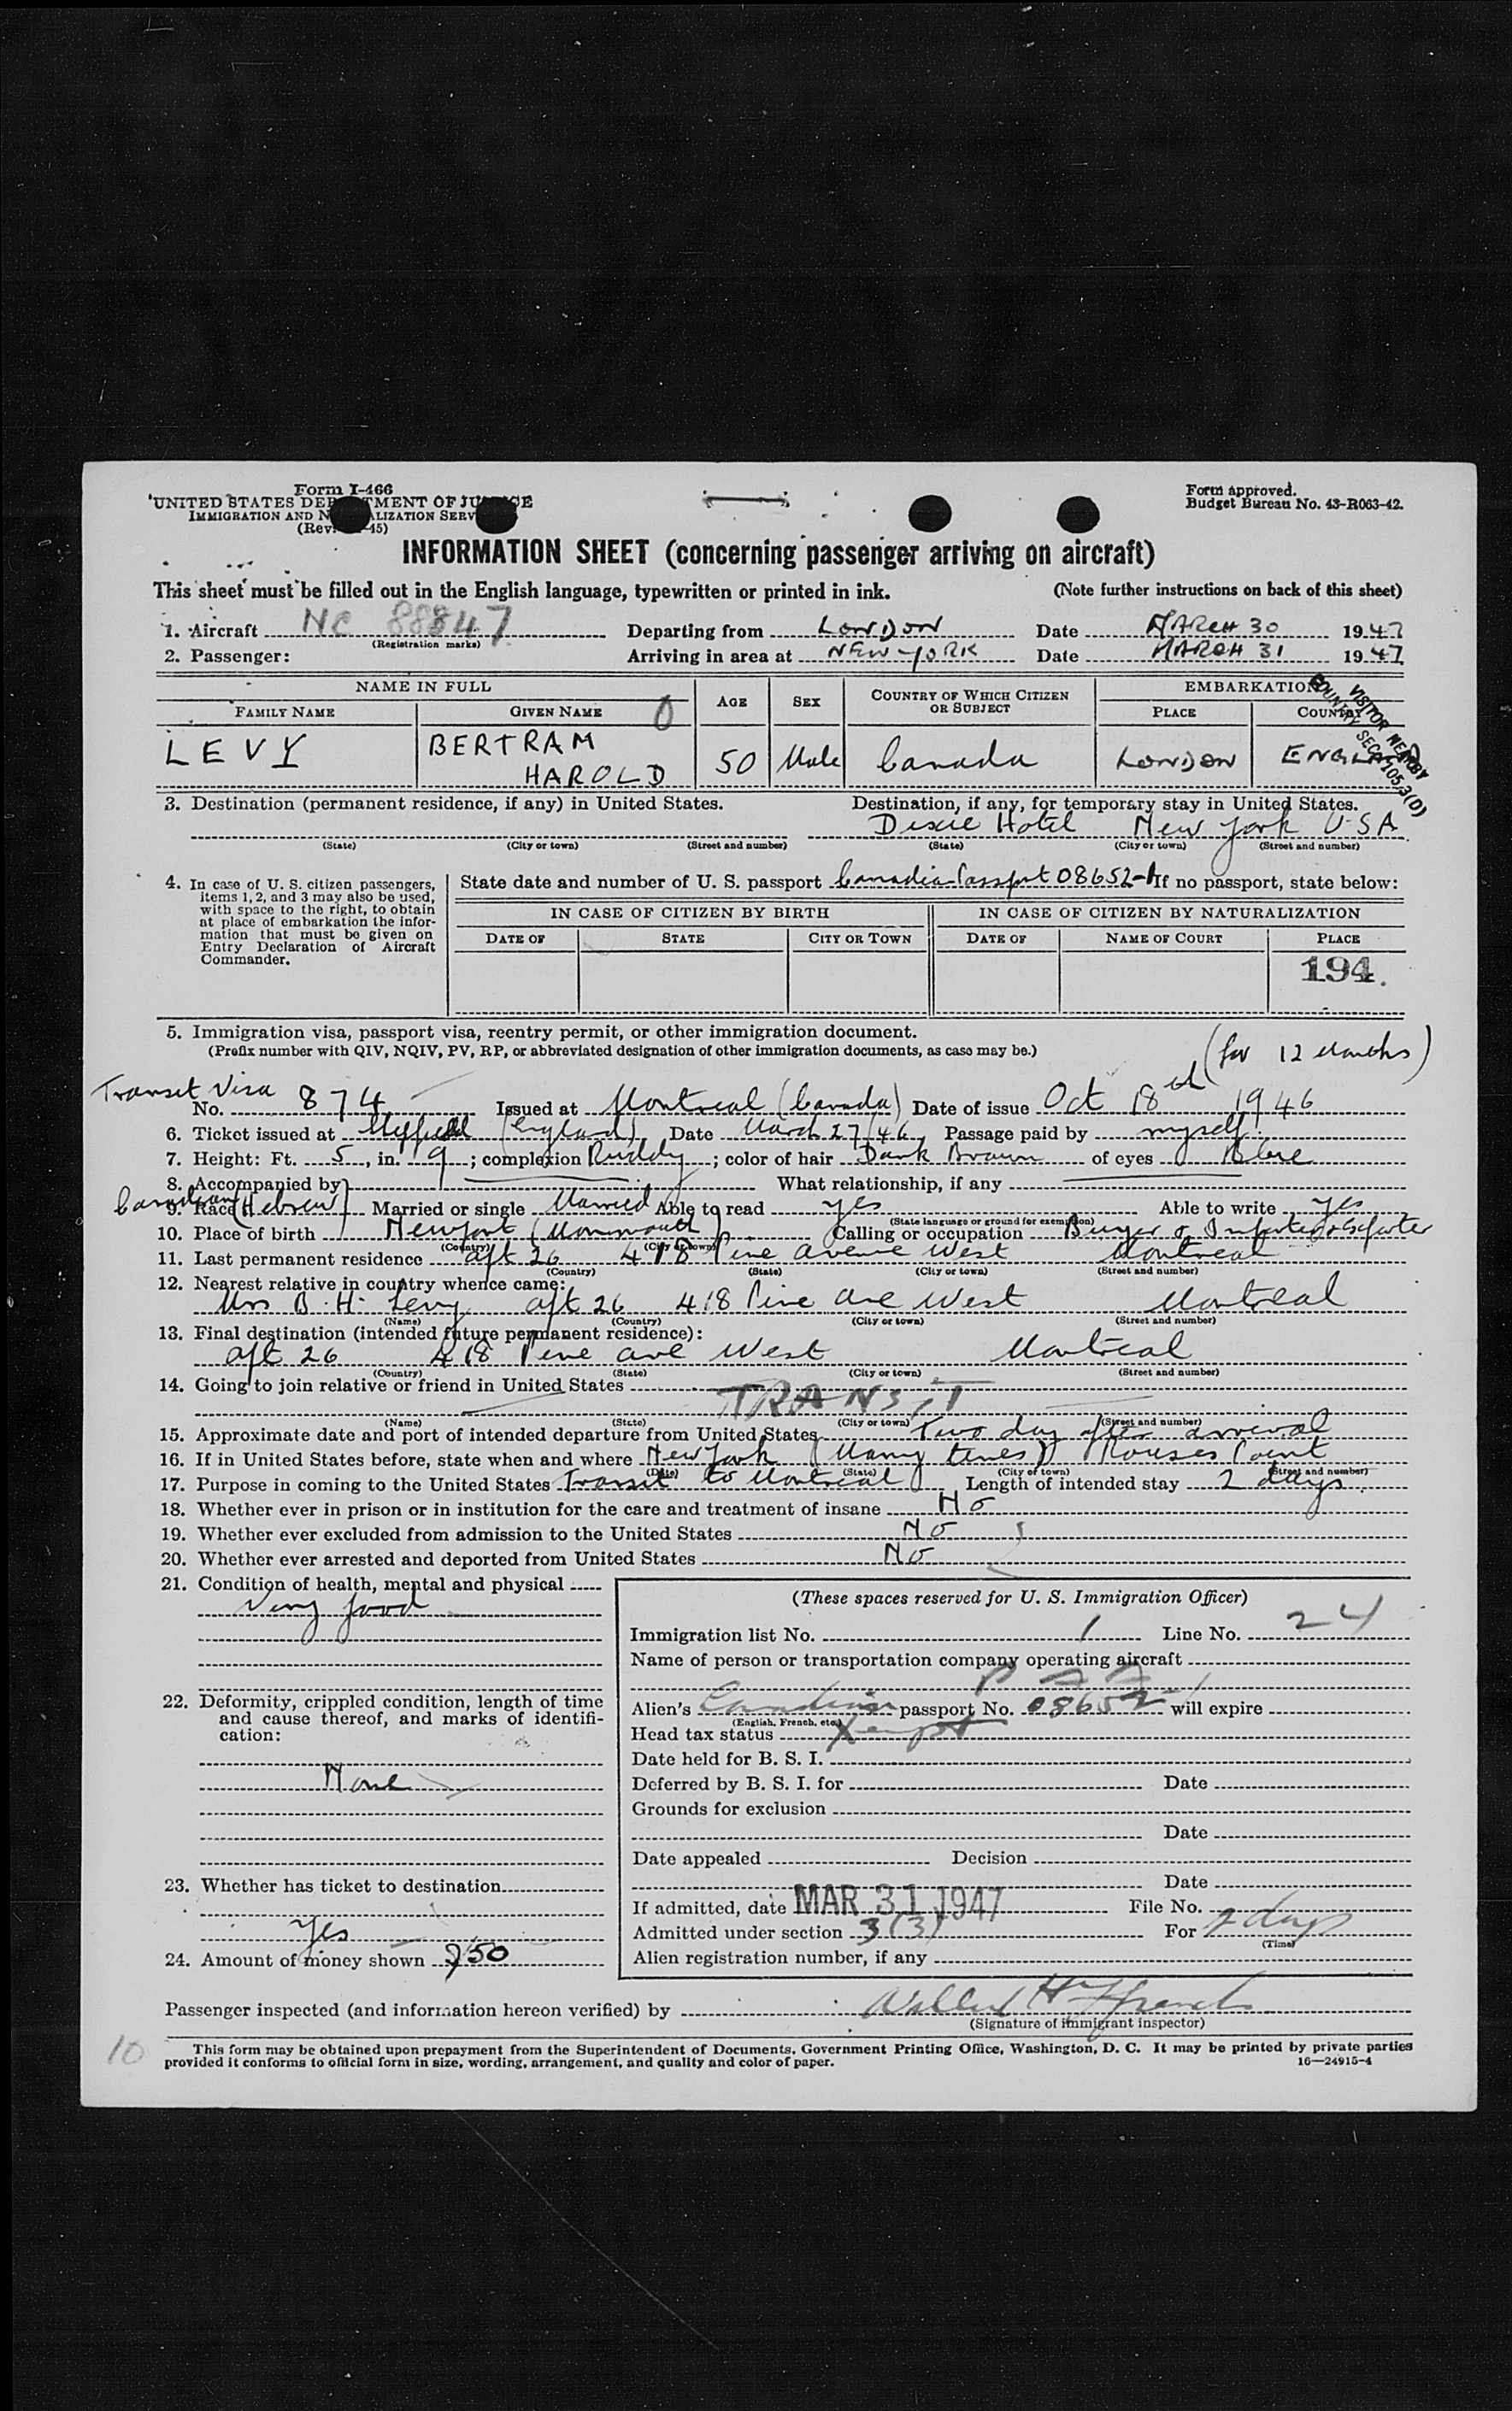 Form I-466
UNITED STATES DEPARTMENT OF JUSTICE
IMMIGRATION AND NATURALIZATION SERV
(Rev. 45)
Form approved.
Budget Bureau No. 43-R063-42.
INFORMATION SHEET (concerning passenger arriving on aircraft)
This sheet must be filled out in the English language, typewritten or printed in ink. (Note further instructions on back of this sheet)
1. Aircraft NC 88847 Departing from LONDON Date MARCH 30 1947
(Registration marks)
2. Passenger: Arriving in area at NEW YORK Date MARCH 31 1947
NAME IN FULL AGE SEX COUNTRY OF WHICH CITIZEN OR SUBJECT EMBARKATION
FAMILY NAME GIVEN NAME PLACE COUNTRY
LEVY BERTRAM HAROLD 50 Male Canada LONDON ENGLAND
VISITOR NEARBY
COUNTRY SEC. 105.3(D)
3. Destination (permanent residence, if any) in United States. Destination, if any, for temporary stay in United States.
Dixie Hotel New York USA
(State) (City or town) (Street and number) (State) (City or town) (Street and number)
4. In case of U. S. citizen passengers, items 1, 2, and 3 may also be used, with space to the right, to obtain at place of embarkation the information that must be given on Entry Declaration of Aircraft Commander.
State date and number of U. S. passport Canadian Passport 08652-1 If no passport, state below:
IN CASE OF CITIZEN BY BIRTH IN CASE OF CITIZEN BY NATURALIZATION
DATE OF STATE CITY OR TOWN DATE OF NAME OF COURT PLACE
194
5. Immigration visa, passport visa, reentry permit, or other immigration document.
(Prefix number with QIV, NQIV, PV, RP, or abbreviated designation of other immigration documents, as case may be.)
(for 12 Months)
Transit Visa No. 874 Issued at Montreal (Canada) Date of issue Oct 18th 1946
6. Ticket issued at Sheffield (England) Date March 27/46 Passage paid by myself
7. Height: Ft. 5, in. 9; complexion Ruddy; color of hair Dark Brown of eyes Blue
8. Accompanied by What relationship, if any
9. Race Canadian (Hebrew) Married or single Married Able to read yes Able to write yes
(State language or ground for exemption)
10. Place of birth Newport (Monmouth) Calling or occupation Buyer & Importer & Exporter
(Country) (City or town)
11. Last permanent residence apt 26 418 Pine Avenue West Montreal
(Country) (State) (City or town) (Street and number)
12. Nearest relative in country whence came:
Mrs B. H. Levy apt 26 418 Pine Ave West Montreal
(Name) (Country) (City or town) (Street and number)
13. Final destination (intended future permanent residence):
apt 26 418 Pine ave West Montreal
(Country) (State) (City or town) (Street and number)
14. Going to join relative or friend in United States
TRANSIT
(Name) (State) (City or town) (Street and number)
15. Approximate date and port of intended departure from United States Two day after arrival
16. If in United States before, state when and where New York (Many times) Rouses Point
(Date) (State) (City or town) (Street and number)
17. Purpose in coming to the United States Transit to Montreal Length of intended stay 2 days
18. Whether ever in prison or in institution for the care and treatment of insane No
19. Whether ever excluded from admission to the United States No
20. Whether ever arrested and deported from United States No
21. Condition of health, mental and physical
Very good
22. Deformity, crippled condition, length of time and cause thereof, and marks of identification:
None
23. Whether has ticket to destination
Yes
24. Amount of money shown $50
(These spaces reserved for U. S. Immigration Officer)
Immigration list No. 1 Line No. 24
Name of person or transportation company operating aircraft
P A A
Alien's Canadian passport No. 08652-1 will expire
(English, French, etc.)
Head tax status Xempt
Date held for B. S. I.
Deferred by B. S. I. for Date
Grounds for exclusion
Date
Date appealed Decision
Date
If admitted, date MAR 31 1947 File No.
Admitted under section 3(3) For 2 days
(Time)
Alien registration number, if any
Passenger inspected (and information hereon verified) by
(Signature of immigrant inspector)
10
This form may be obtained upon prepayment from the Superintendent of Documents, Government Printing Office, Washington, D. C. It may be printed by private parties
provided it conforms to official form in size, wording, arrangement, and quality and color of paper. 16—24915-4